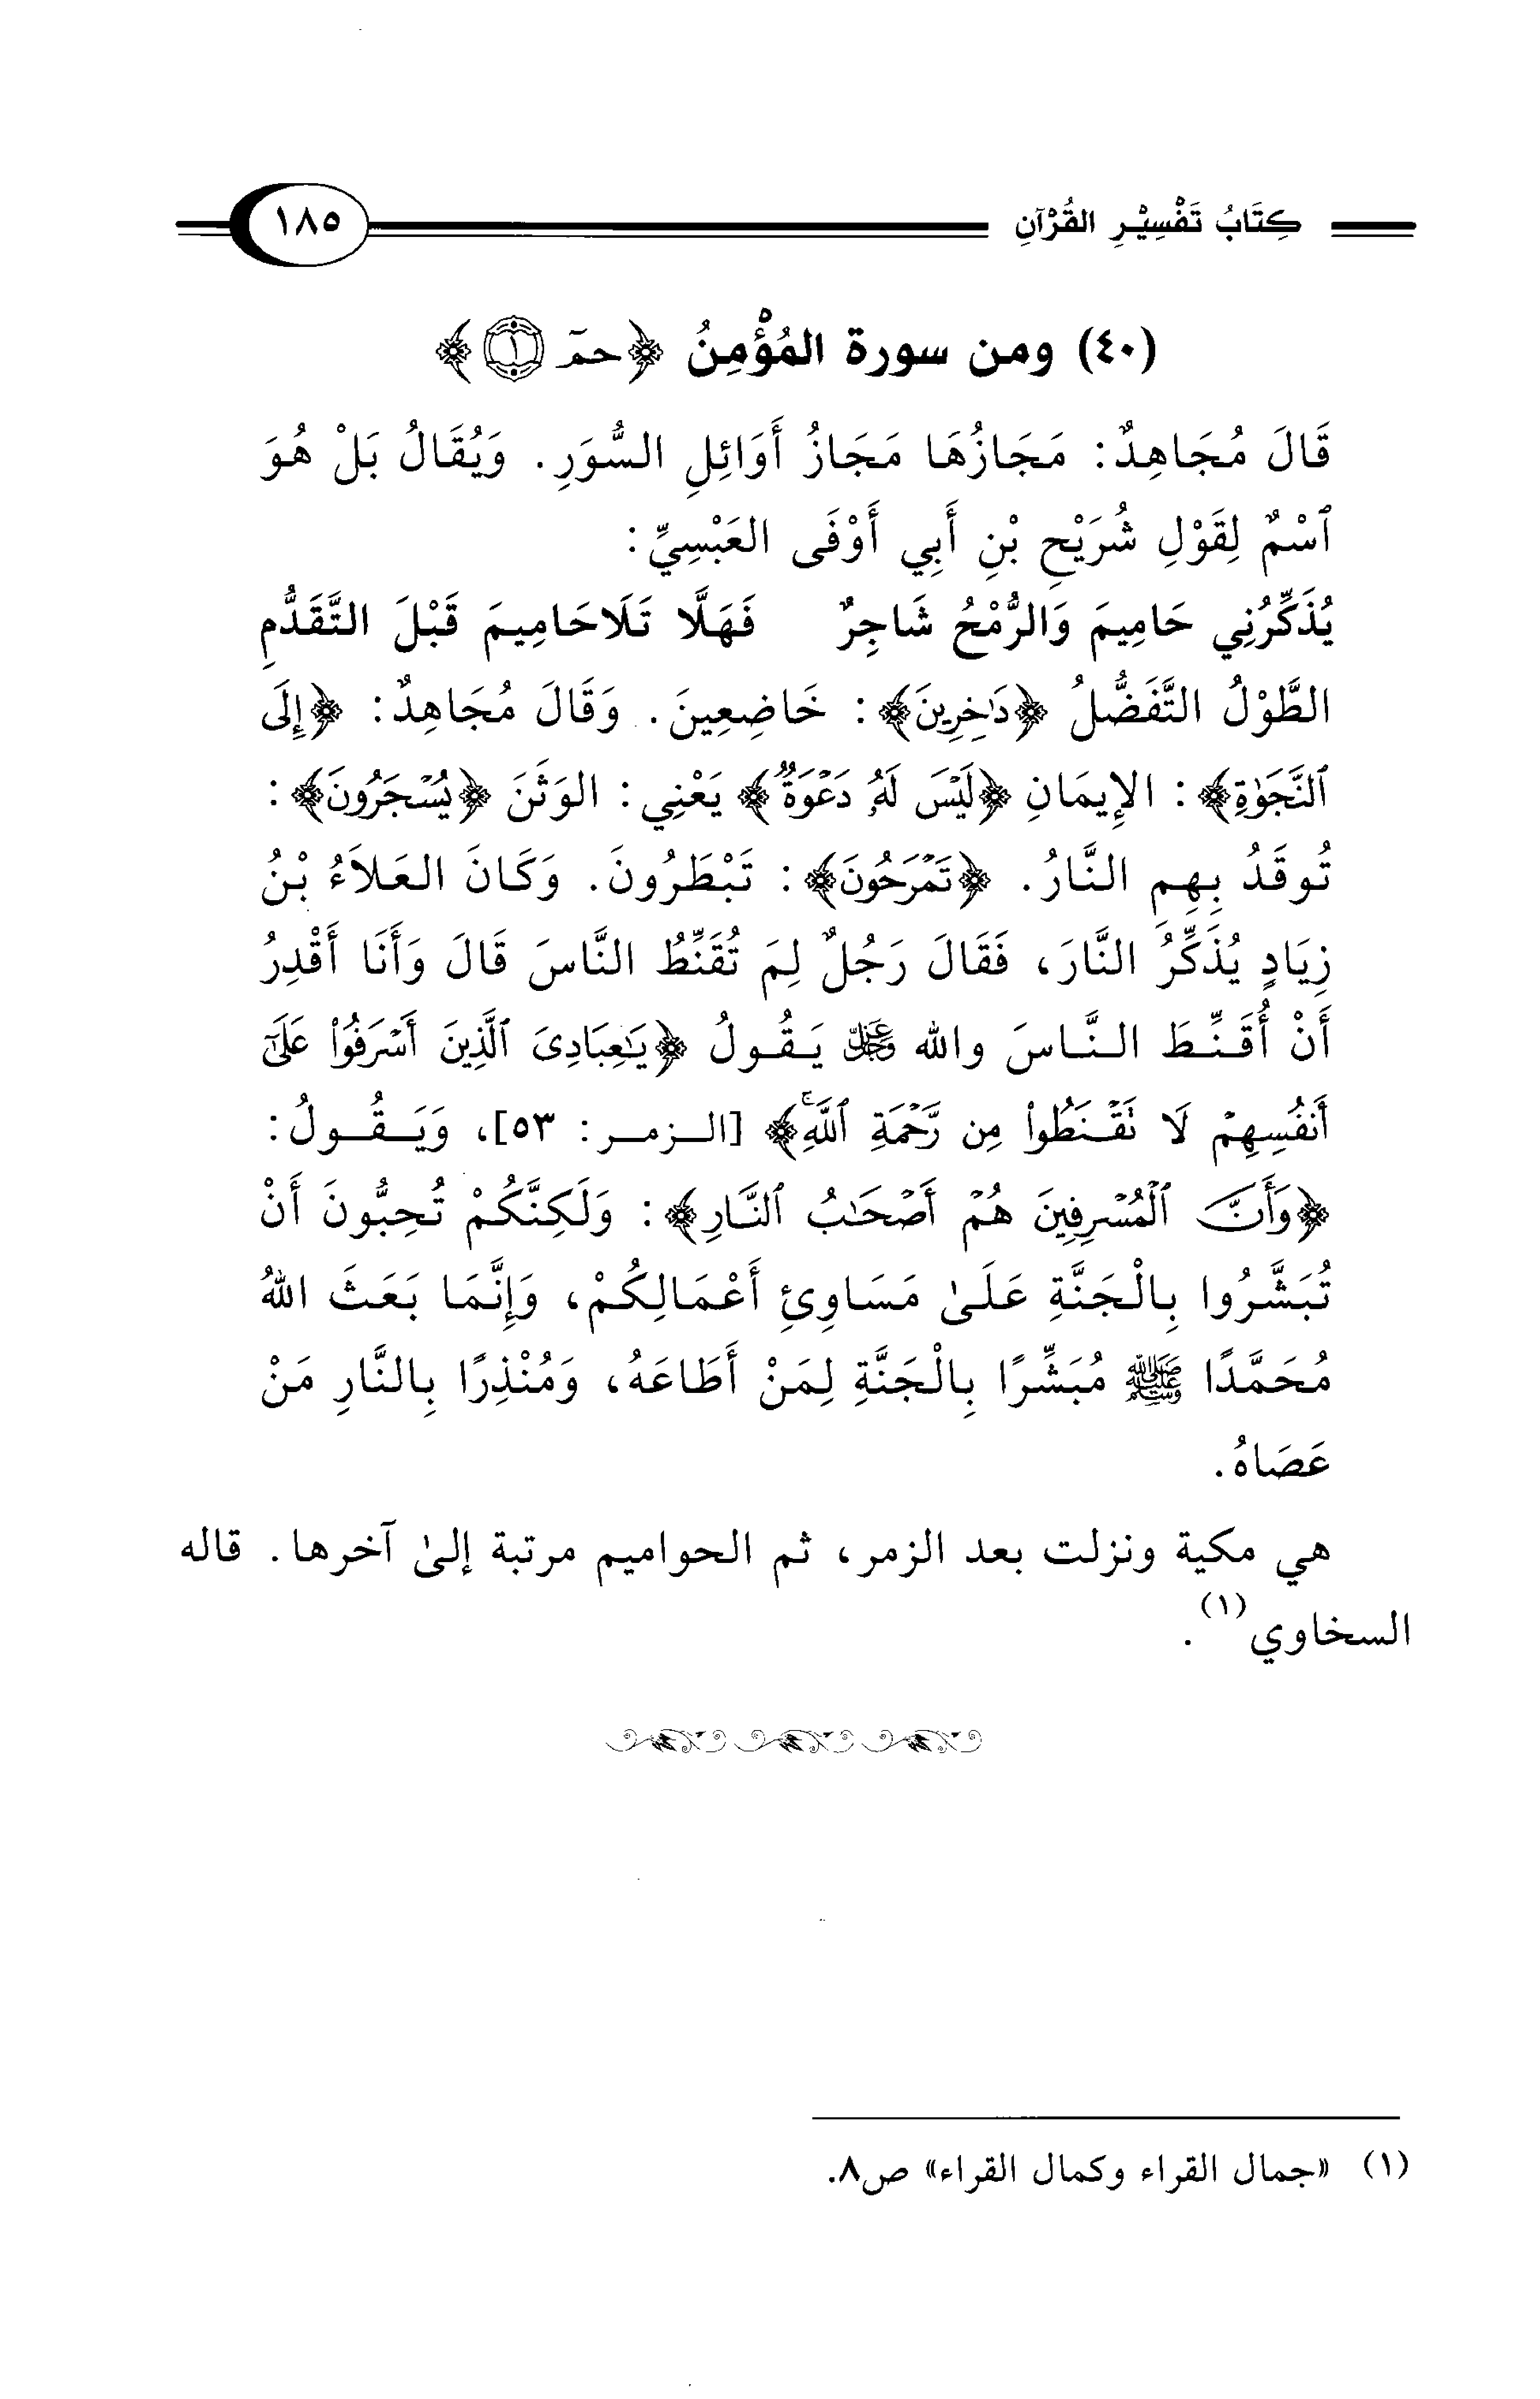 كِتَابُ تَفْسِيْرِ القُرْآنِ ١٨٥
(٤٠) ومن سورة المُؤْمِنُ ﴿حمٓ ۝١﴾
قَالَ مُجَاهِدٌ: مَجَازُهَا مَجَازُ أَوَائِلِ السُّوَرِ. وَيُقَالُ بَلْ هُوَ
ٱسْمٌ لِقَوْلِ شُرَيْحِ بْنِ أَبِي أَوْفَى العَبْسِيِّ:
يُذَكِّرُنِي حَامِيمَ وَالرُّمْحُ شَاجِرٌ فَهَلَّا تَلَاحَامِيمَ قَبْلَ التَّقَدُّمِ
الطَّوْلُ التَّفَضُّلُ ﴿دَٰخِرِينَ﴾: خَاضِعِينَ. وَقَالَ مُجَاهِدٌ: ﴿إِلَى
ٱلنَّجَوٰةِ﴾: الإِيمَانِ ﴿لَيْسَ لَهُۥ دَعْوَةٌ﴾ يَعْنِي: الوَثَنَ ﴿يُسْجَرُونَ﴾:
تُوقَدُ بِهِمِ النَّارُ. ﴿تَمْرَحُونَ﴾: تَبْطَرُونَ. وَكَانَ العَلاَءُ بْنُ
زِيَادٍ يُذَكِّرُ النَّارَ، فَقَالَ رَجُلٌ لِمَ تُقَنِّطُ النَّاسَ قَالَ وَأَنَا أَقْدِرُ
أَنْ أُقَنِّطَ النَّاسَ والله عَزَّ وَجَلَّ يَقُولُ ﴿يَٰعِبَادِىَ ٱلَّذِينَ أَسْرَفُوا۟ عَلَىٰٓ
أَنفُسِهِمْ لَا نَقْنَطُوا۟ مِن رَّحْمَةِ ٱللَّهِ﴾ [الزمر: ٥٣]، وَيَقُولُ:
﴿وَأَنَّ ٱلْمُسْرِفِينَ هُمْ أَصْحَٰبُ ٱلنَّارِ﴾: وَلَكِنَّكُمْ تُحِبُّونَ أَنْ
تُبَشَّرُوا بِالْجَنَّةِ عَلَىٰ مَسَاوِئِ أَعْمَالِكُمْ، وَإِنَّمَا بَعَثَ اللهُ
مُحَمَّدًا ﷺ مُبَشِّرًا بِالْجَنَّةِ لِمَنْ أَطَاعَهُ، وَمُنْذِرًا بِالنَّارِ مَنْ
عَصَاهُ.
هي مكية ونزلت بعد الزمر، ثم الحواميم مرتبة إلىٰ آخرها. قاله
السخاوي(١).
(١) «جمال القراء وكمال القراء» ص٨.